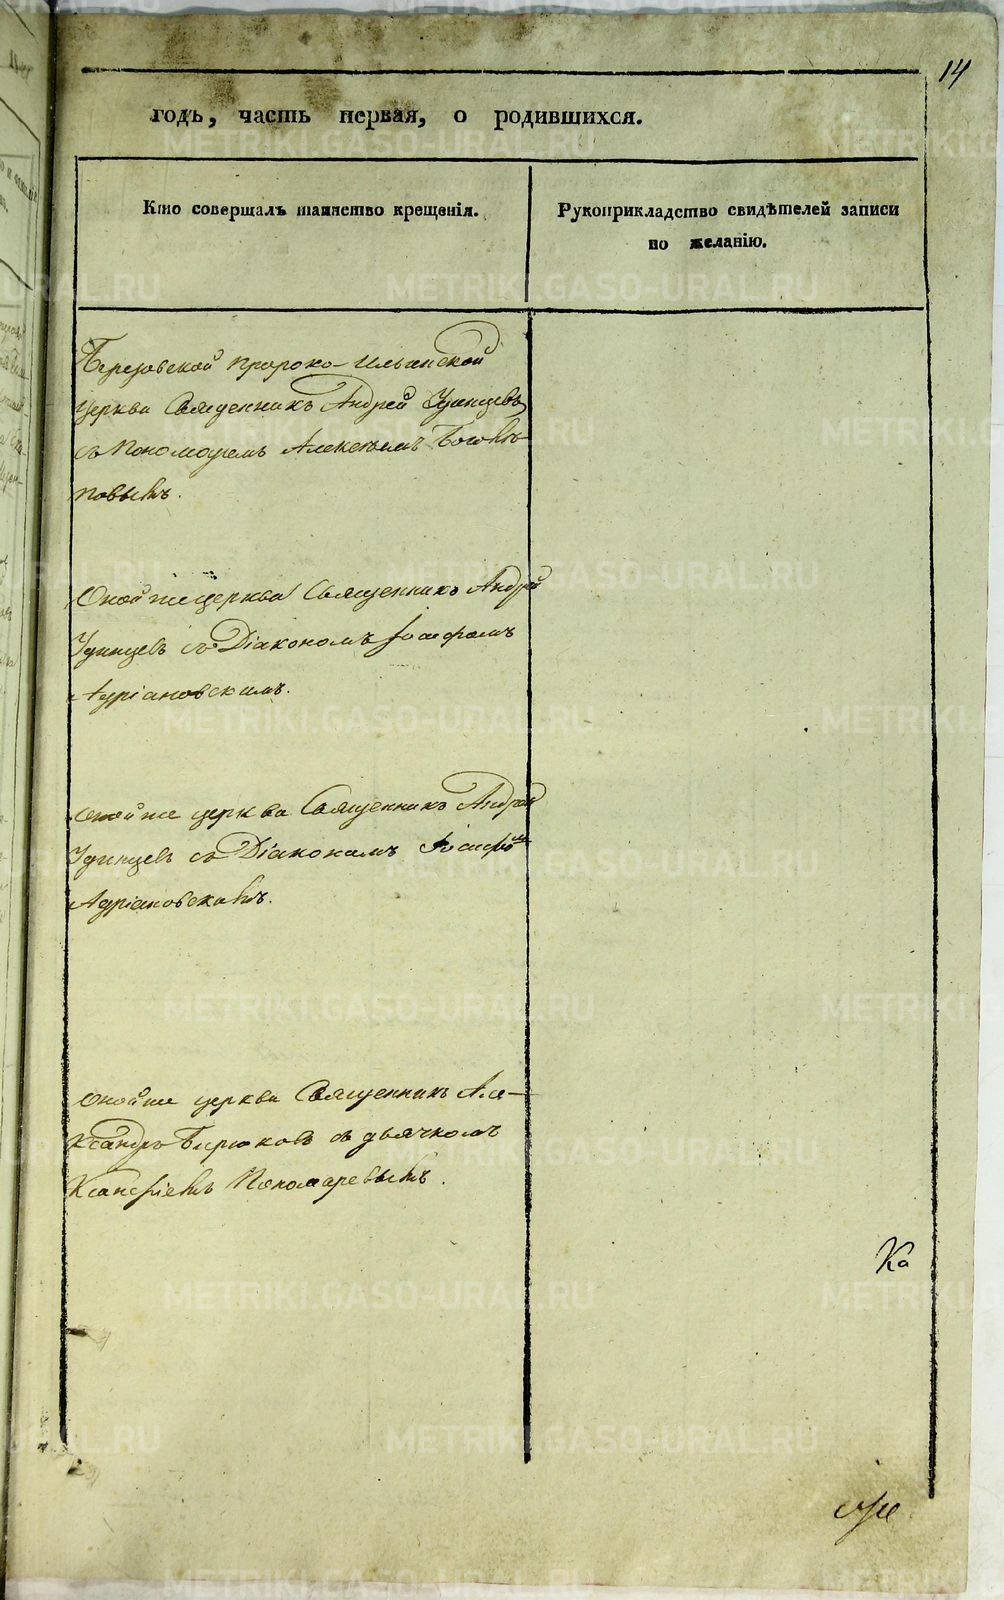 14
годъ, часть первая, о родившихся.
Кто совершалъ таинство крещенія.
Рукоприкладство свидѣтелей записи
по желанію.
Березовской Пророко-Ильинской
церкви Священникъ Андрей Удинцевъ
съ Пономаремъ Алексѣемъ
Оной же церкви Священникъ Андрей
Удинцевъ съ Діакономъ Іосифомъ
Адріановскимъ.
оной же церкви Священникъ Андрей
Удинцевъ съ Діакономъ Іосифомъ
Адріановскимъ.
оной же церкви Священникъ Але-
ксандръ Бирюковъ съ дьячкомъ
Пономаревымъ.
METRIKI.GASO-URAL.RU